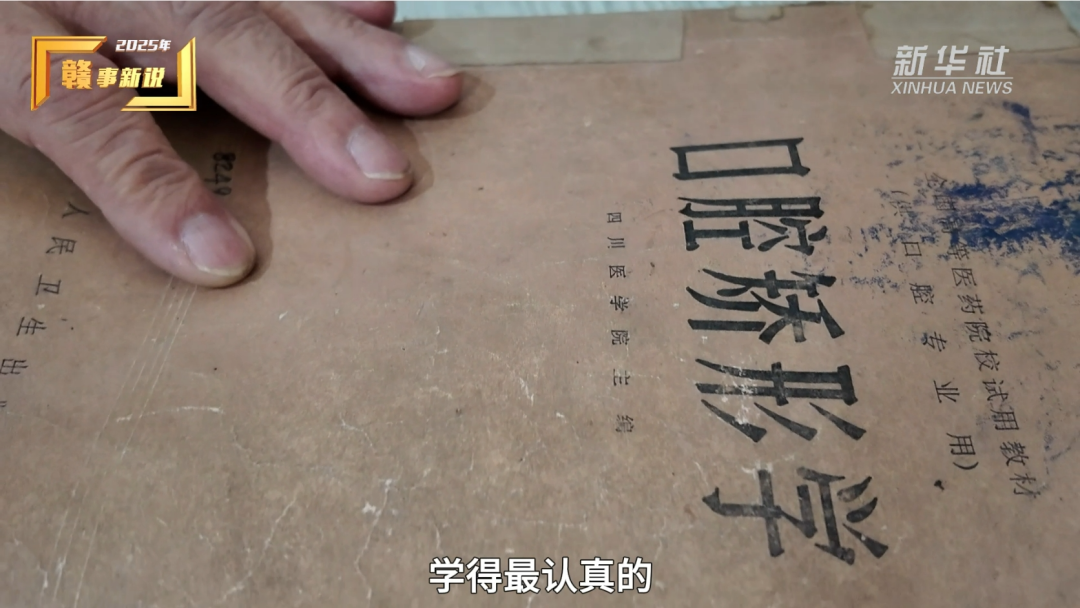 2025年
赣事新说
新华社
XINHUA NEWS
等医药院校试用教材
(供口腔专业用)
口腔矫形学
四川医学院主编
人民卫生出
学得最认真的